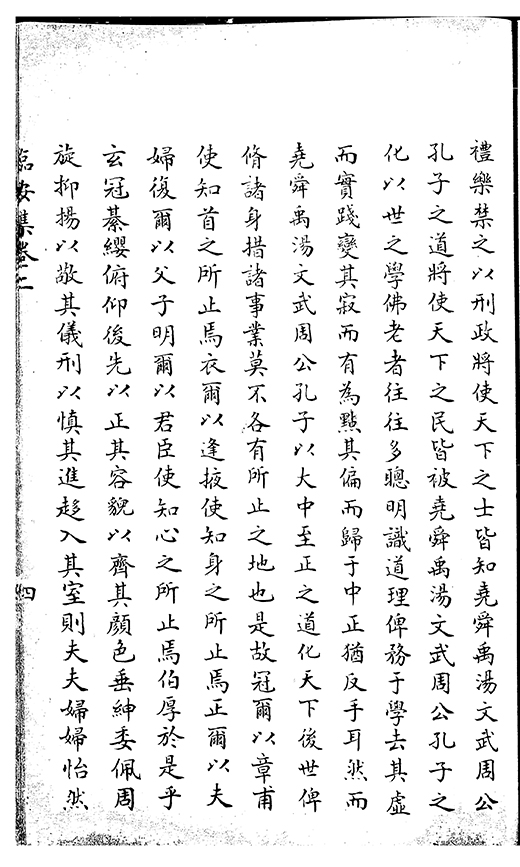 禮樂禁之以刑政將使天下之士皆知堯舜禹湯文武周公
孔子之道將使天下之民皆被堯舜禹湯文武周公孔子之
化以世之學佛老者往往多聰明識道理俾務于學去其虛
而實踐變其寂而有為黜其偏而歸于中正猶反手耳然而
堯舜禹湯文武周公孔子以大中至正之道化天下後世俾
脩諸身措諸事業莫不各有所止之地也是故冠爾以章甫
使知首之所止焉衣爾以逢掖使知身之所止焉正爾以夫
婦復爾以父子明爾以君臣使知心之所止焉伯厚於是乎
玄冠綦纓俯仰後先以正其容貌以齊其顏色垂紳委佩周
旋抑揚以敬其儀刑以慎其進趍入其室則夫夫婦婦怡然
臨安集卷二
四